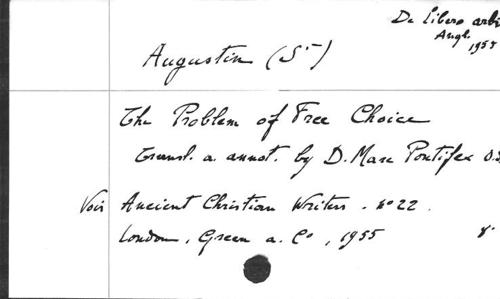 De libero arbi
Angl.
1955
Augustin (St)
The Problem of Free Choice
Transl. a. annot. by D. Marc Pontifex O.S
Voir Ancient Christian Writers . No 22.
London, Green a. Co, 1955 8°